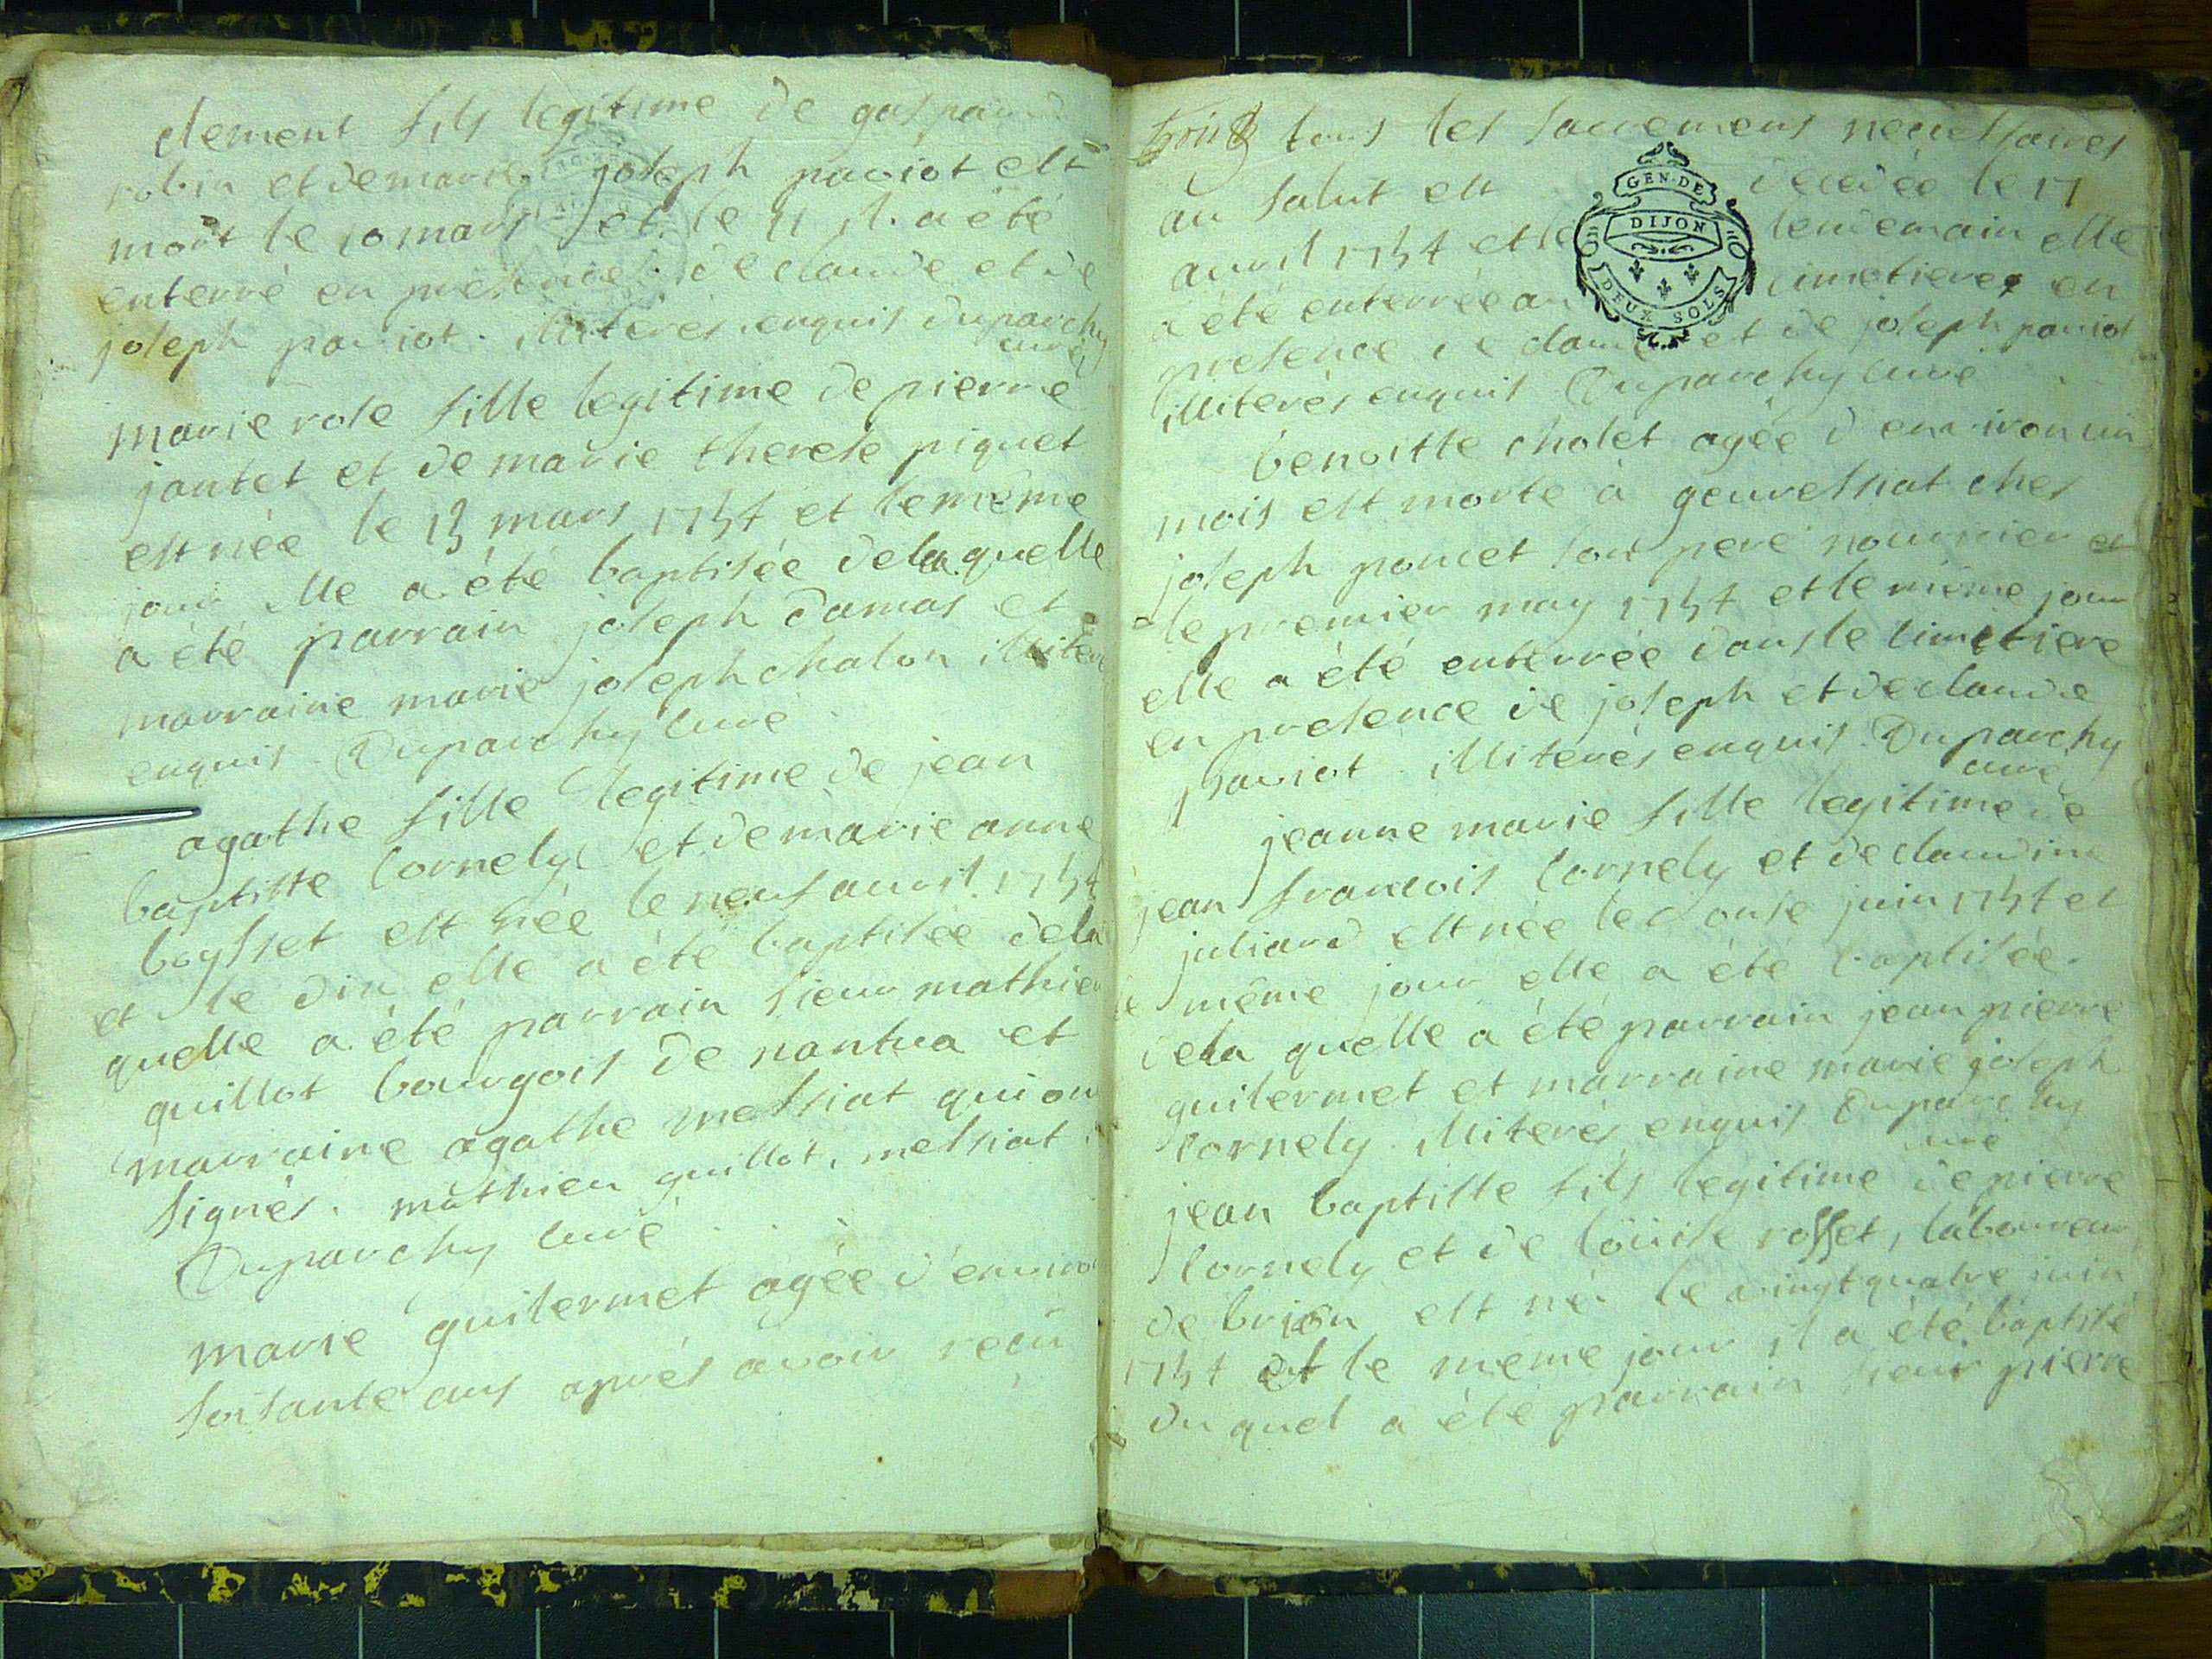 clement fils legitime de gaspard
robin et de marie joseph paviot est
mort le 10 mars et le 11 dt. a été
enterré en présence de claude et de
joseph paviot. illiterés enquis Duparchy
curé
marie rose fille legitime de pierre
jantet et de marie therese piquet
est née le 13 mars 1754 et le même
jour elle a été baptisée de laquelle
a été parrain joseph damas et
marraine marie joseph chalon illiterés
enquis. Duparchy curé
agathe fille legitime de jean
baptiste cornely et de marie anne
boysset est née le neuf avril 1754
et le dix elle a été baptisée de la
quelle a été parrain sieur mathieu
guillot bourgois de nantua et
marraine agathe messiat qui ont
signés. mathieu guillot, messiat.
Duparchy curé
marie guilermet agée d'environ
soisante ans aprés avoir reçu
tous les sacremens necessaires
au salut est GEN. DE decedée le 17
avril 1754 et le DIJON lendemain elle
a été enterrée au DEUX SOLS cimetiere en
presence de claude et de joseph paviot
illiterés enquis Duparchy curé
benoitte cholet agée d'environ un
mois est morte à geuvressiat ches
joseph poncet son pere nourricier et
le premier may 1754 et le même jour
elle a été enterrée dans le cimetiere
en presence de joseph et de claude
paviot illiterés enquis. Duparchy
curé
jeanne marie fille legitime de
jean francois cornely et de claudine
juliard est née le douse juin 1754 et
le même jour elle a été baptisée.
de la quelle a été parrain jean pierre
guilermet et marraine marie joseph
cornely. illiterés enquis Duparchy
curé
jean baptiste fils legitime de pierre
cornely et de loüise rosset, laboureur
de brion est né le vingt quatre juin
1754 et le meme jour il a été baptisé
du quel a été parrain sieur pierre